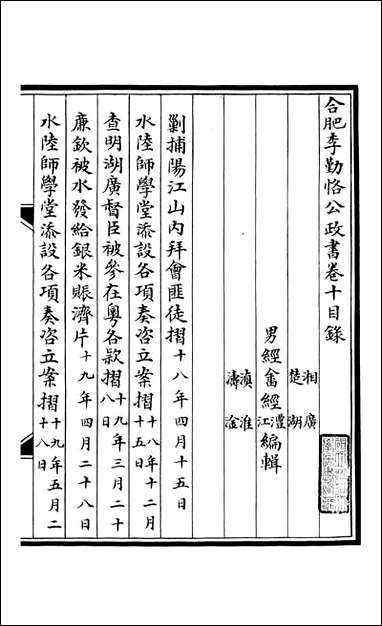 合肥李勤恪公政書卷十目錄
湘廣
楚湖
男經畬經澧江編輯
滇淮
濤淦
剿捕陽江山內拜會匪徒摺十八年四月十五日
水陸師學堂添設各項奏咨立案摺十八年十二月十五日
查明湖廣督臣被參在粵各款摺十九年三月二十八日
廉欽被水發給銀米賑濟片十九年四月二十八日
水陸師學堂添設各項奏咨立案摺十九年五月二十八日